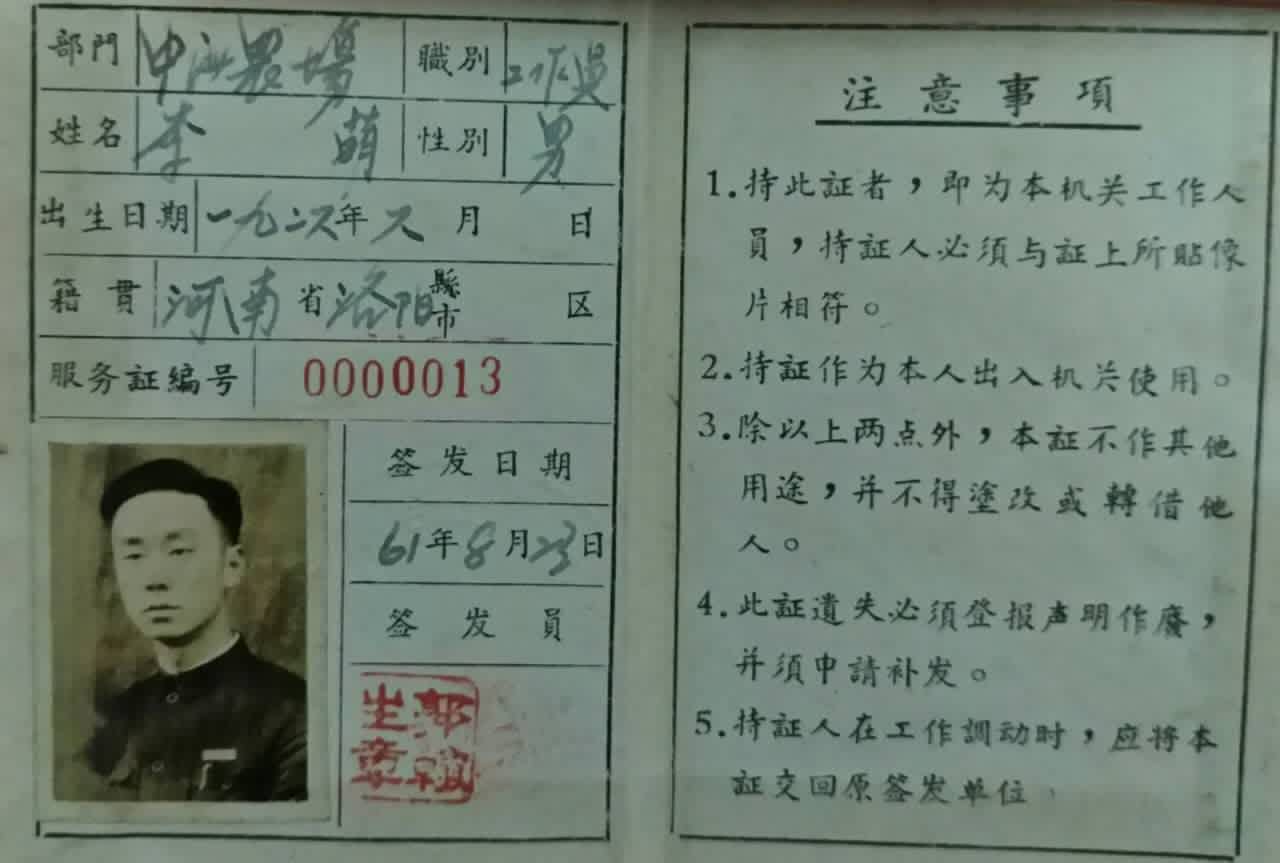 部門 中 農場 職別 工作員
姓名 李 萌 性別 男
出生日期 一九二六年 月 日
籍貫 河南省洛阳縣市 区
服务証編号 0000013
签发日期
61年8月23日
签发員
注意事項
1.持此証者，即为本机关工作人
員，持証人必須与証上所貼像
片相符。
2.持証作为本人出入机关使用。
3.除以上两点外，本証不作其他
用途，并不得塗改或轉借他
人。
4.此証遺失必須登报声明作廢，
并须申請补发。
5.持証人在工作調动时，应将本
証交回原签发单位